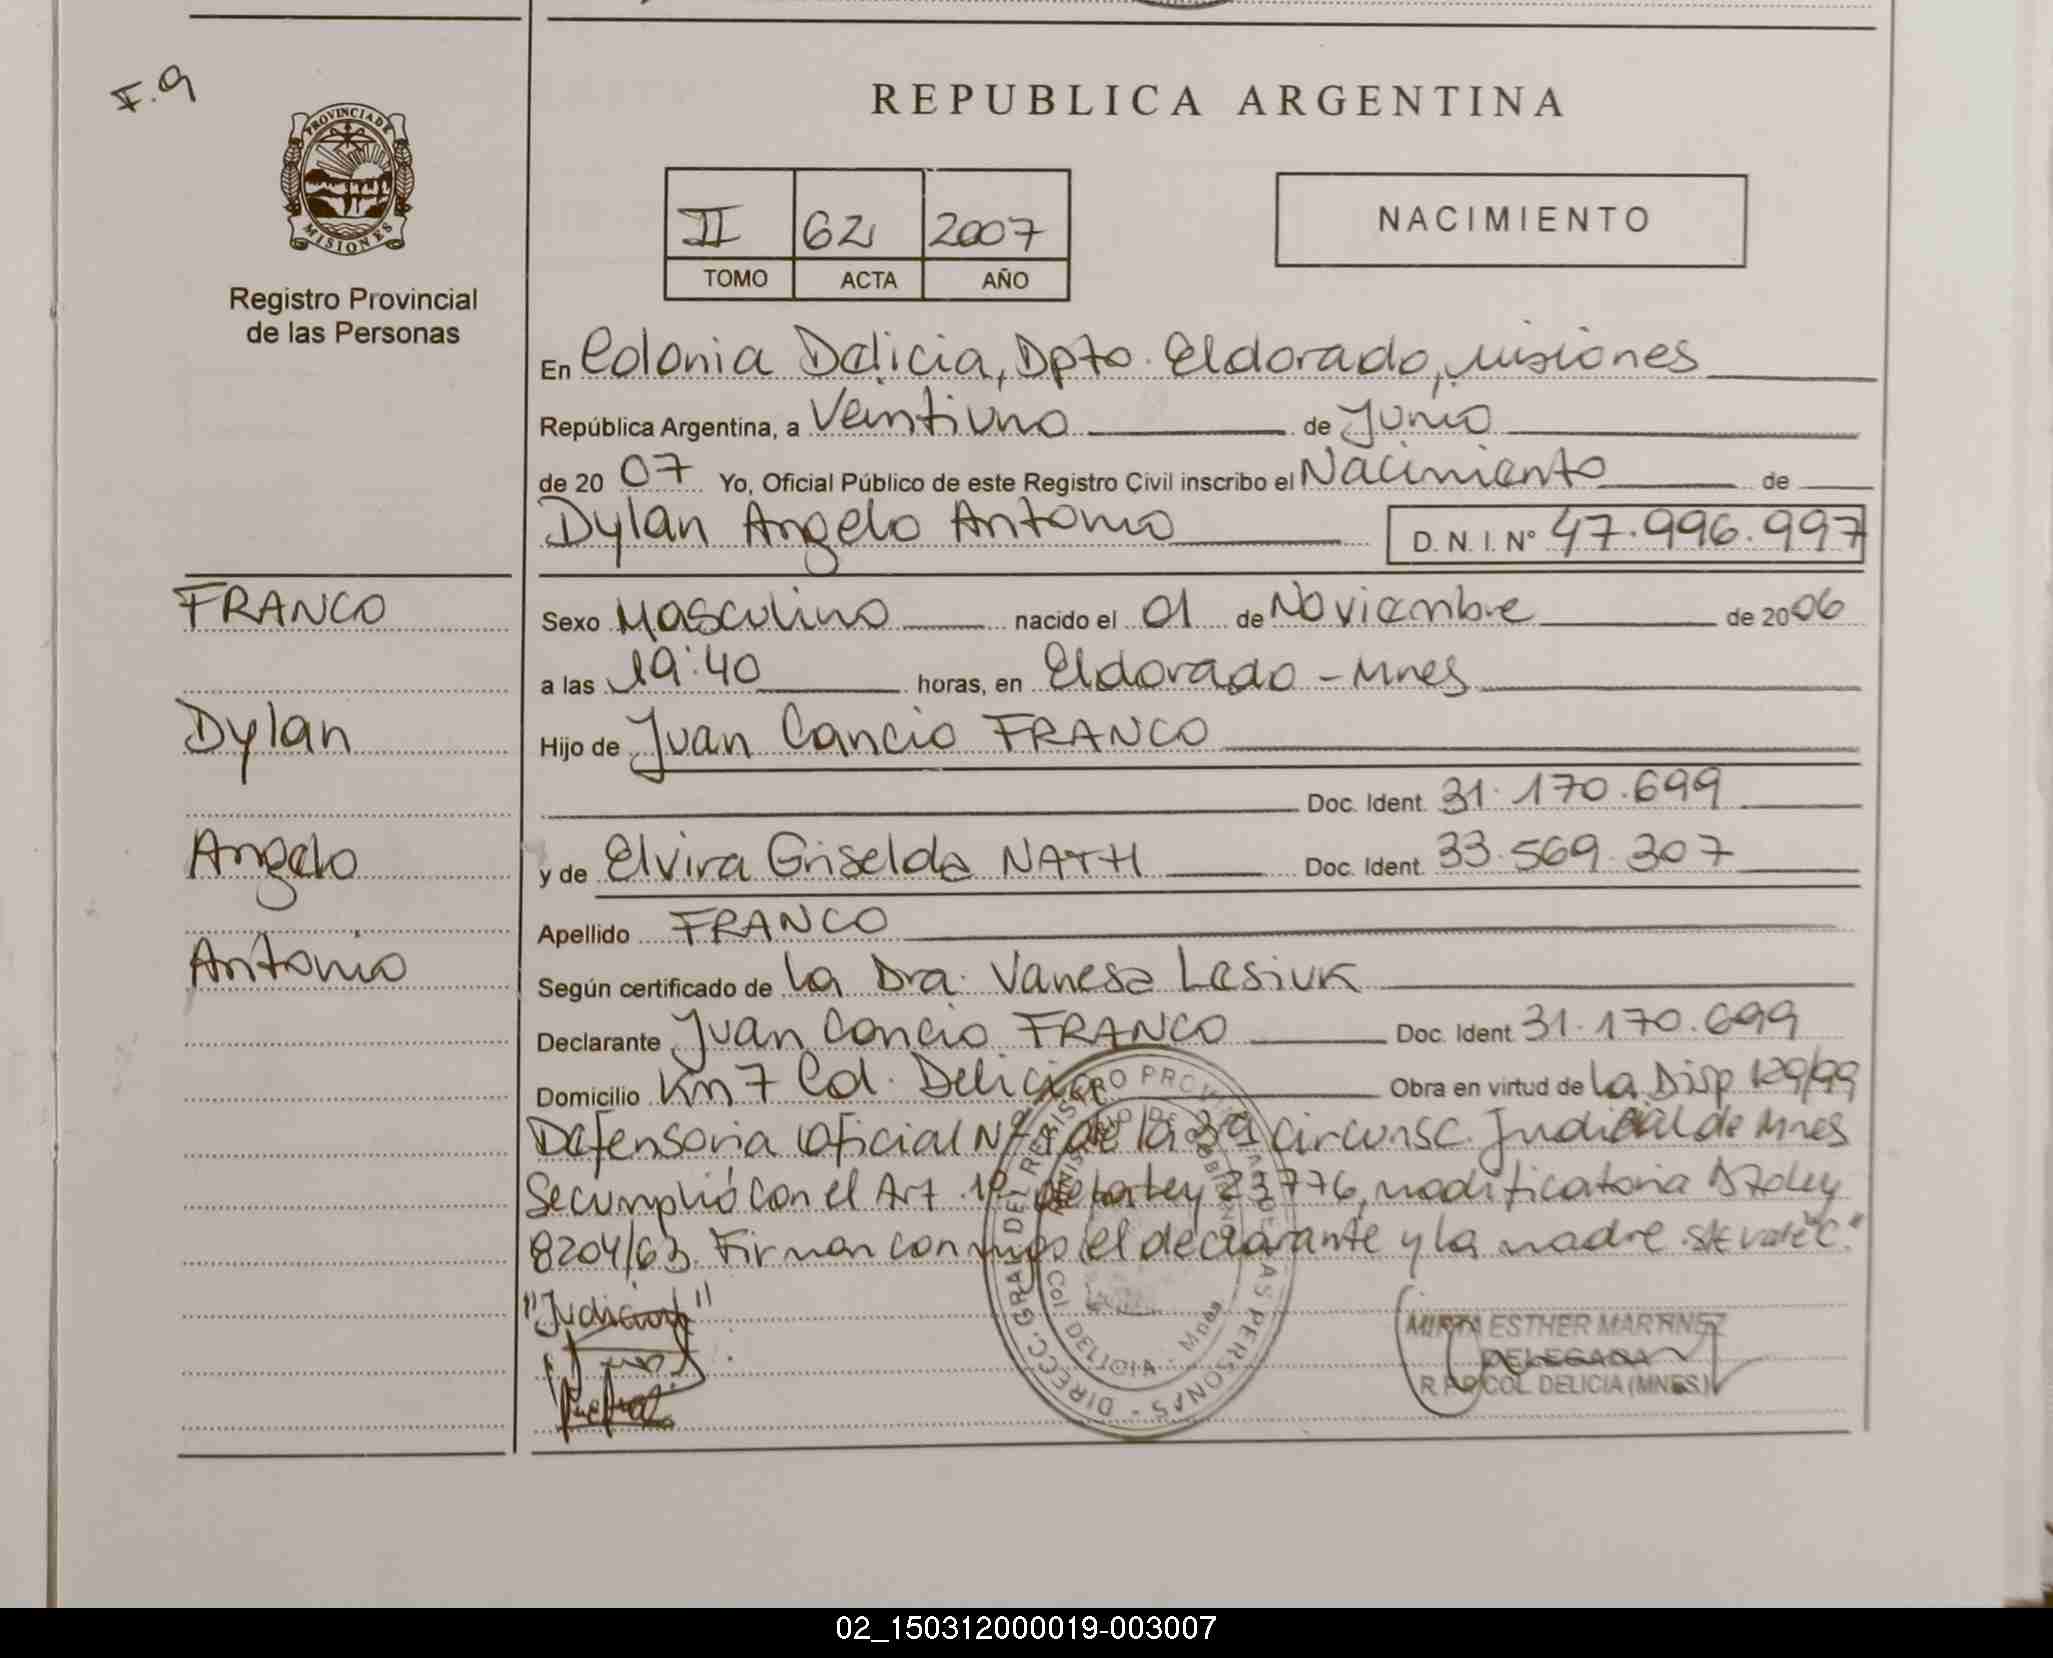 F.9
PROVINCIA DE
MISIONES
Registro Provincial
de las Personas
REPUBLICA ARGENTINA
II 62 2007
TOMO ACTA AÑO
NACIMIENTO
En Colonia Delicia, Dpto. Eldorado, Misiones
República Argentina, a Veintiuno de Junio
de 20 07 Yo, Oficial Público de este Registro Civil inscribo el Nacimiento de
Dylan Angelo Antonio D. N. I. Nº 47.996.997
FRANCO
Dylan
Angelo
Antonio
Sexo Masculino nacido el 01 de Noviembre de 2006
a las 19:40 horas, en Eldorado - Mnes
Hijo de Juan Cancio FRANCO
Doc. Ident. 31.170.699
y de Elvira Griselda NATH Doc. Ident. 33.569.307
Apellido FRANCO
Según certificado de la Dra. Vanesa Lesiuk
Declarante Juan Cancio FRANCO Doc. Ident 31.170.699
Domicilio Km 7 Col. Delicia Obra en virtud de la Disp 129/99
Defensoria Oficial Nº 1 de la 3ª Circunsc. Judicial de Mnes
Se cumplió con el Art. 1º de la Ley 23776, modificatoria Ley
8204/63. Firman conmigo el declarante y la madre
"Judicial"
DIRECC. GRAL DEL REGISTRO PROVINCIAL DE LAS PERSONAS
Col. DELICIA - Mnes
MIRTA ESTHER MARTINEZ
DELEGADA
R.P.P COL. DELICIA (MNES.)
02_150312000019-003007